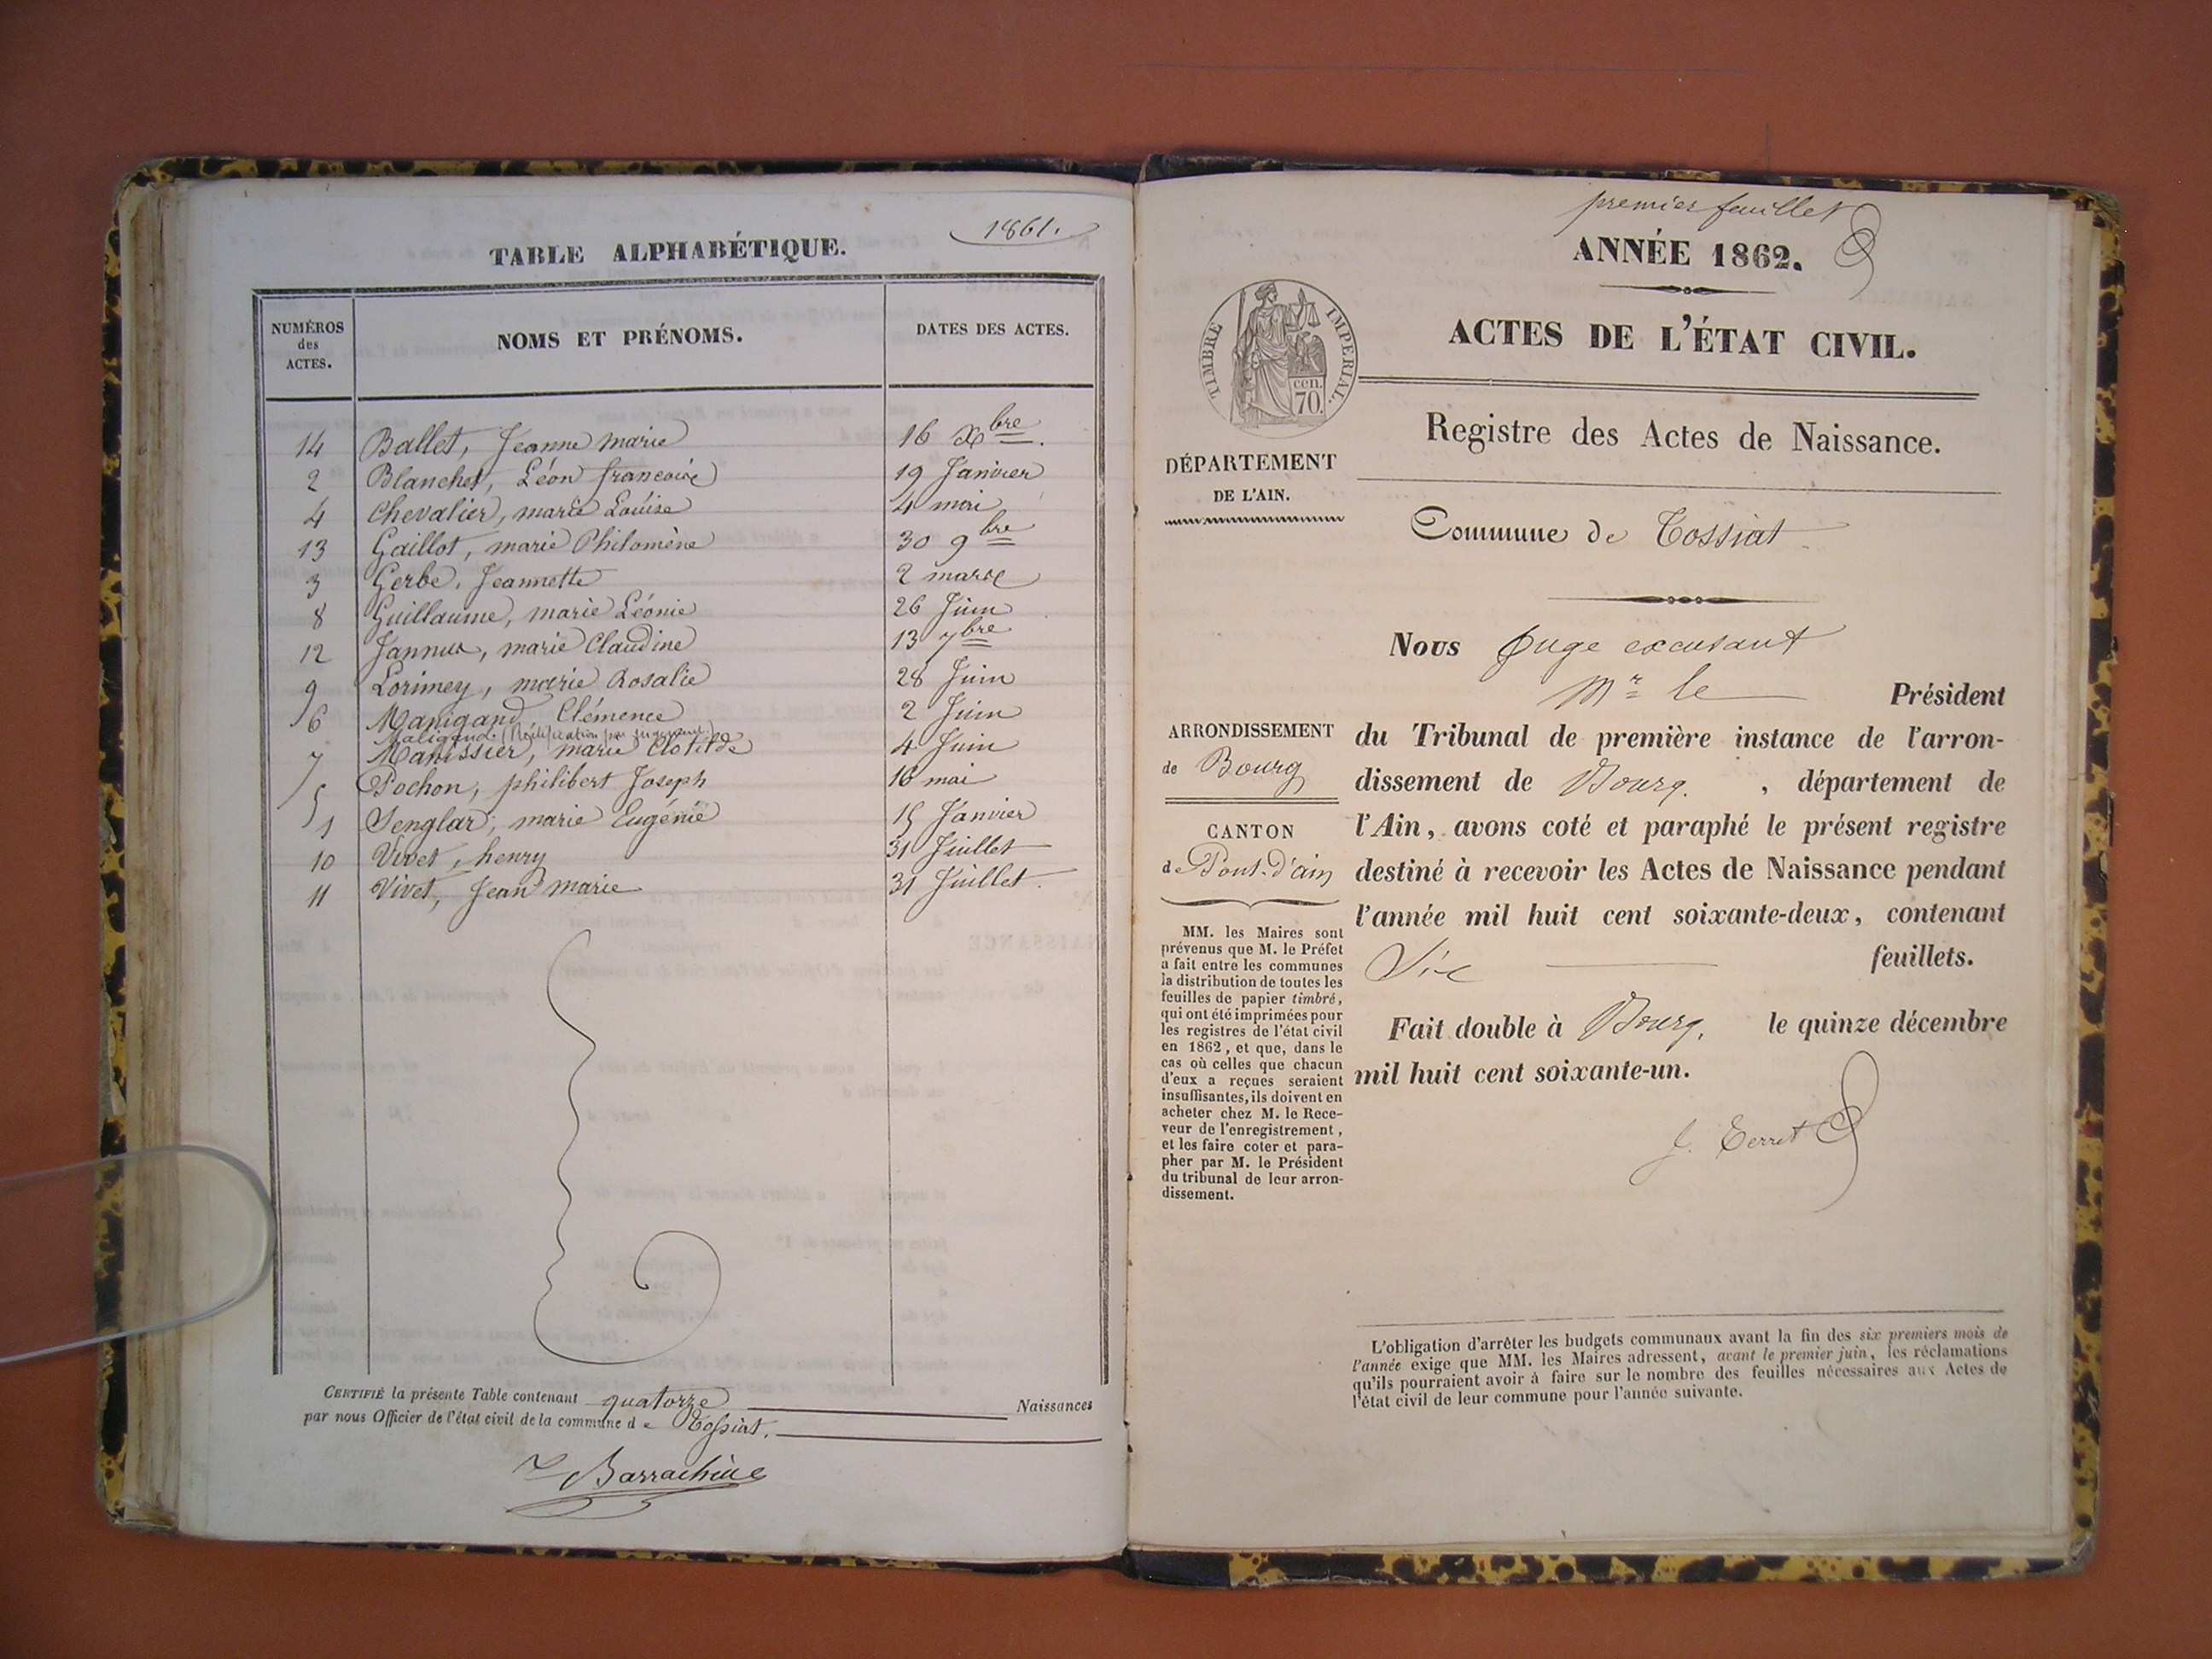 1861.
TABLE ALPHABÉTIQUE.
NUMÉROS des ACTES.
NOMS ET PRÉNOMS.
DATES DES ACTES.
14 Ballet, Jeanne marie 16 Xbre.
2 Blanchet, Léon françois 19 Janvier
4 Chevalier, marie Louise 4 mai
13 Gaillot, marie Philomène 30 9bre
3 Gerbe, Jeannette 2 marse
8 Guillaume, marie Léonie 26 Juin
12 marie Claudine 13 7bre
9 Lorimey, marie Rosalie 28 Juin
6 Manigand Clémence 2 Juin
Maligand. (Rectification par jugement)
7 Manissier, marie Clotilde 4 Juin
5 Pochon, philibert Joseph 16 mai
1 Senglar, marie Eugénie 15 Janvier
10 Vivet, henry 31 Juillet
11 Vivet, Jean marie 31 Juillet.
CERTIFIÉ la présente Table contenant quatorze Naissances
par nous Officier de l'état civil de la commune de Tossiat.
Barrachine
premier feuillet
ANNÉE 1862.
TIMBRE IMPERIAL.
cen.
70.
ACTES DE L'ÉTAT CIVIL.
Registre des Actes de Naissance.
DÉPARTEMENT
DE L'AIN.
Commune de Tossiat
Nous Juge excusant
Mr le Président
ARRONDISSEMENT
de Bourg
CANTON
de Pont-d'ain
du Tribunal de première instance de l'arron-
dissement de Bourg. , département de
l'Ain, avons coté et paraphé le présent registre
destiné à recevoir les Actes de Naissance pendant
l'année mil huit cent soixante-deux, contenant
Six feuillets.
Fait double à Bourg, le quinze décembre
mil huit cent soixante-un.
J. Terret
MM. les Maires sont
prévenus que M. le Préfet
a fait entre les communes
la distribution de toutes les
feuilles de papier timbré,
qui ont été imprimées pour
les registres de l'état civil
en 1862, et que, dans le
cas où celles que chacun
d'eux a reçues seraient
insuffisantes, ils doivent en
acheter chez M. le Rece-
veur de l'enregistrement,
et les faire coter et para-
pher par M. le Président
du tribunal de leur arron-
dissement.
L'obligation d'arrêter les budgets communaux avant la fin des six premiers mois de
l'année exige que MM. les Maires adressent, avant le premier juin, les réclamations
qu'ils pourraient avoir à faire sur le nombre des feuilles nécessaires aux Actes de
l'état civil de leur commune pour l'année suivante.